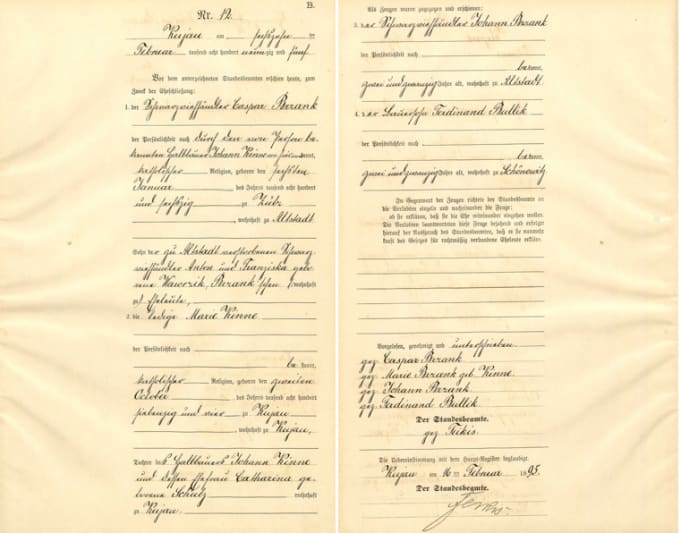 B.
Nr. 12.
Kujau am sechszehn ten
Februar tausend acht hundert neunzig und fünf
Vor dem unterzeichneten Standesbeamten erschienen heute, zum
Zweck der Eheschließung:
1. der Schwarzviehhändler Caspar Bezank
der Persönlichkeit nach durch den von Person be
kannten Halbbauer Johann Kinne aner kannt,
katholischer Religion, geboren den sechsten
Januar des Jahres tausend acht hundert
und sechszig zu Zülz
, wohnhaft zu Altstadt
Sohn der zu Altstadt verstorbenen Schwarz
viehhändler Anton und Franziska gebo
rene Wawrzik, Bezank'schen wohnhaft
zu Eheleute,
2. die ledige Marie Kinne
der Persönlichkeit nach
be kannt,
katholischer Religion, geboren den zweiten
October des Jahres tausend acht hundert
siebenzig und vier zu Kujau
, wohnhaft zu Kujau,
Tochter des Halbbauers Johann Kinne
und dessen Ehefrau Catharina ge
borene Schütz wohnhaft
zu Kujau.
Als Zeugen waren zugezogen und erschienen:
3. der Schwarzviehhändler Johann Bezank
der Persönlichkeit nach
be kannt,
zwei und zwanzig Jahre alt, wohnhaft zu Altstadt
4. der Bauersohn Ferdinand Bullik
der Persönlichkeit nach
be kannt,
zwei und zwanzig Jahre alt, wohnhaft zu Schönowitz
In Gegenwart der Zeugen richtete der Standesbeamte an
die Verlobten einzeln und nacheinander die Frage:
ob sie erklären, daß sie die Ehe miteinander eingehen wollen.
Die Verlobten beantworteten diese Frage bejahend und erfolgte
hierauf der Ausspruch des Standesbeamten, daß er sie nunmehr
kraft des Gesetzes für rechtmäßig verbundene Eheleute erkläre.
Vorgelesen, genehmigt und unterschrieben
gez Caspar Bezank
gez Marie Bezank geb Kinne
gez Johann Bezank
gez Ferdinand Bullik
Der Standesbeamte.
gez
Die Uebereinstimmung mit dem Haupt-Register beglaubigt.
Kujau am 16 ten Februar 1895.
Der Standesbeamte.